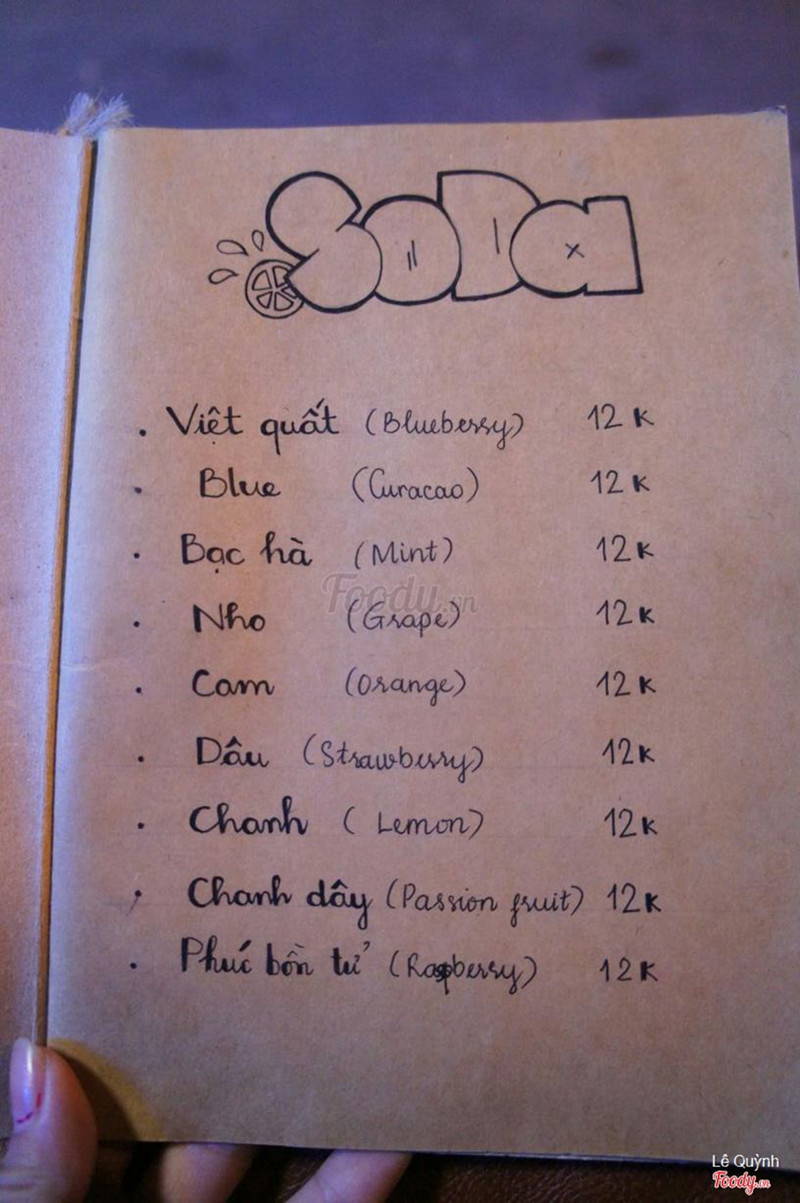 SODa
. Việt quất (Blueberry) 12 K
. Blue (Curacao) 12 K
. Bạc hà (Mint) 12K
Foody.vn
. Nho (Grape) 12K
. Cam (Orange) 12K
. Dâu (Strawberry) 12K
. Chanh ( Lemon) 12K
. Chanh dây (Passion fruit) 12K
. Phúc bồn tử (Raspberry) 12K
Lê Quỳnh
Foody.vn